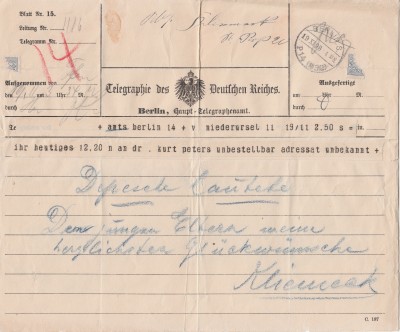 Blatt Nr. 15.
Leitung Nr. 1116
Telegramm Nr.
14
Aufgenommen von
den um Uhr M.
durch
Telegraphie des Deutschen Reiches.
Berlin, Haupt-Telegraphenamt.
Ausgefertigt
Uhr M.
durch
Te + amts berlin 14 + v niederursel 11 15/11 2.50 s = m
ihr hestiges 12,20 n an dr. kurt peters unbestellbar adressat unbekannt +
Depesche lautete
Den jungen Eltern meine
herzlichsten Glückwünsche
C. 187